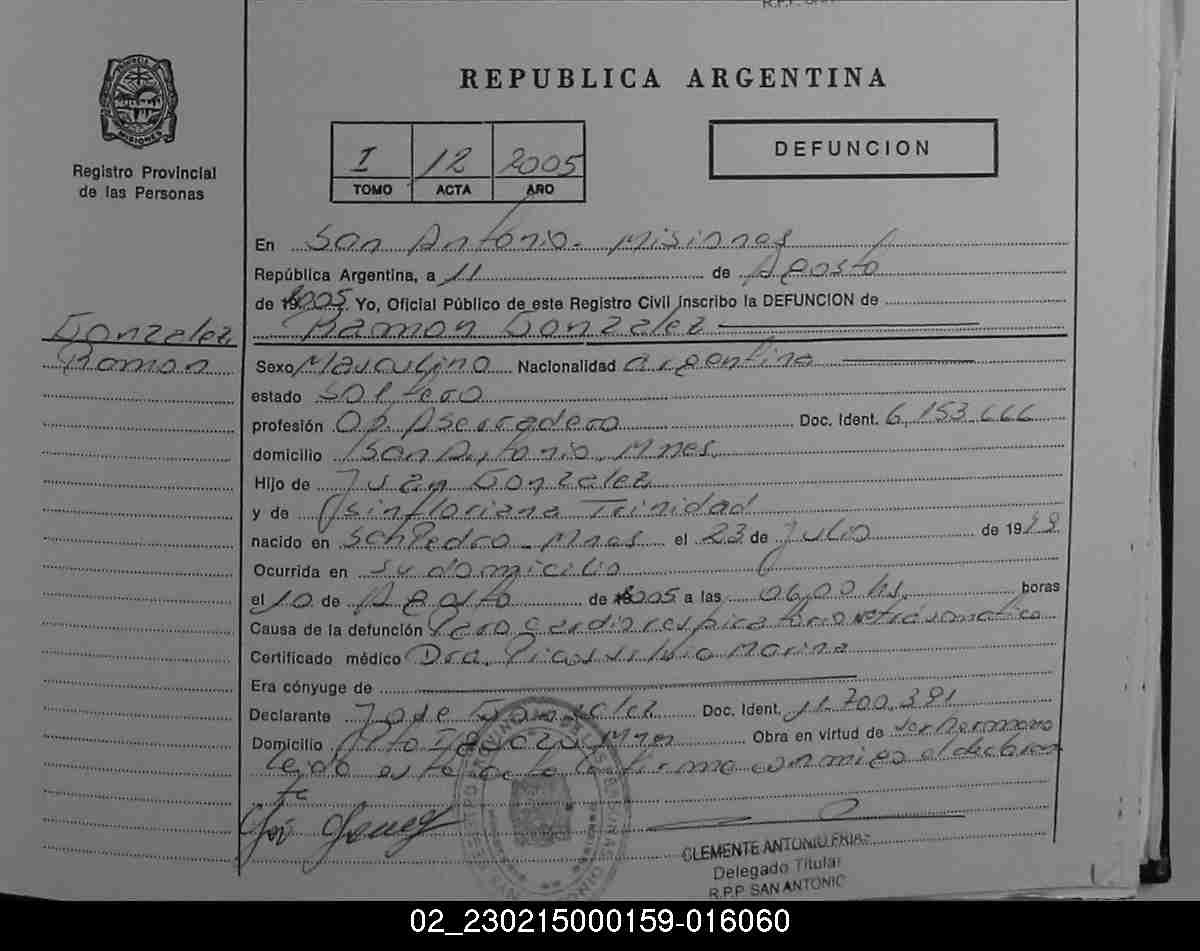 REPUBLICA ARGENTINA
PROVINCIA DE
MISIONES
Registro Provincial
de las Personas
I 12 2005
TOMO ACTA AÑO
DEFUNCION
En San Antonio. Misiones
República Argentina, a 11 de Agosto
de 2005 Yo, Oficial Público de este Registro Civil inscribo la DEFUNCION de
Gonzalez Ramon Gonzalez
Ramon
Sexo Masculino Nacionalidad argentina
estado Soltero
profesión Op Aserradero Doc. Ident. 6.153.666
domicilio San Antonio. Mnes.
Hijo de Juan Gonzalez
y de Trinidad
nacido en San Pedro - Mnes el 23 de Julio de 19
Ocurrida en su domicilio
el 10 de Agosto de 2005 a las 06,00 hs. horas
Causa de la defunción Paro cardio respiratorio no traumatico
Certificado médico Dra. Silvia Marina
Era cónyuge de
Declarante Jose Gonzalez Doc. Ident. 11.700.391
Domicilio Mnes Obra en virtud de ser hermano
leida esta acta la firma conmigo el declaran
te
CLEMENTE ANTONIO FRIAS
Delegado Titular
R.P.P. SAN ANTONIO
02_230215000159-016060